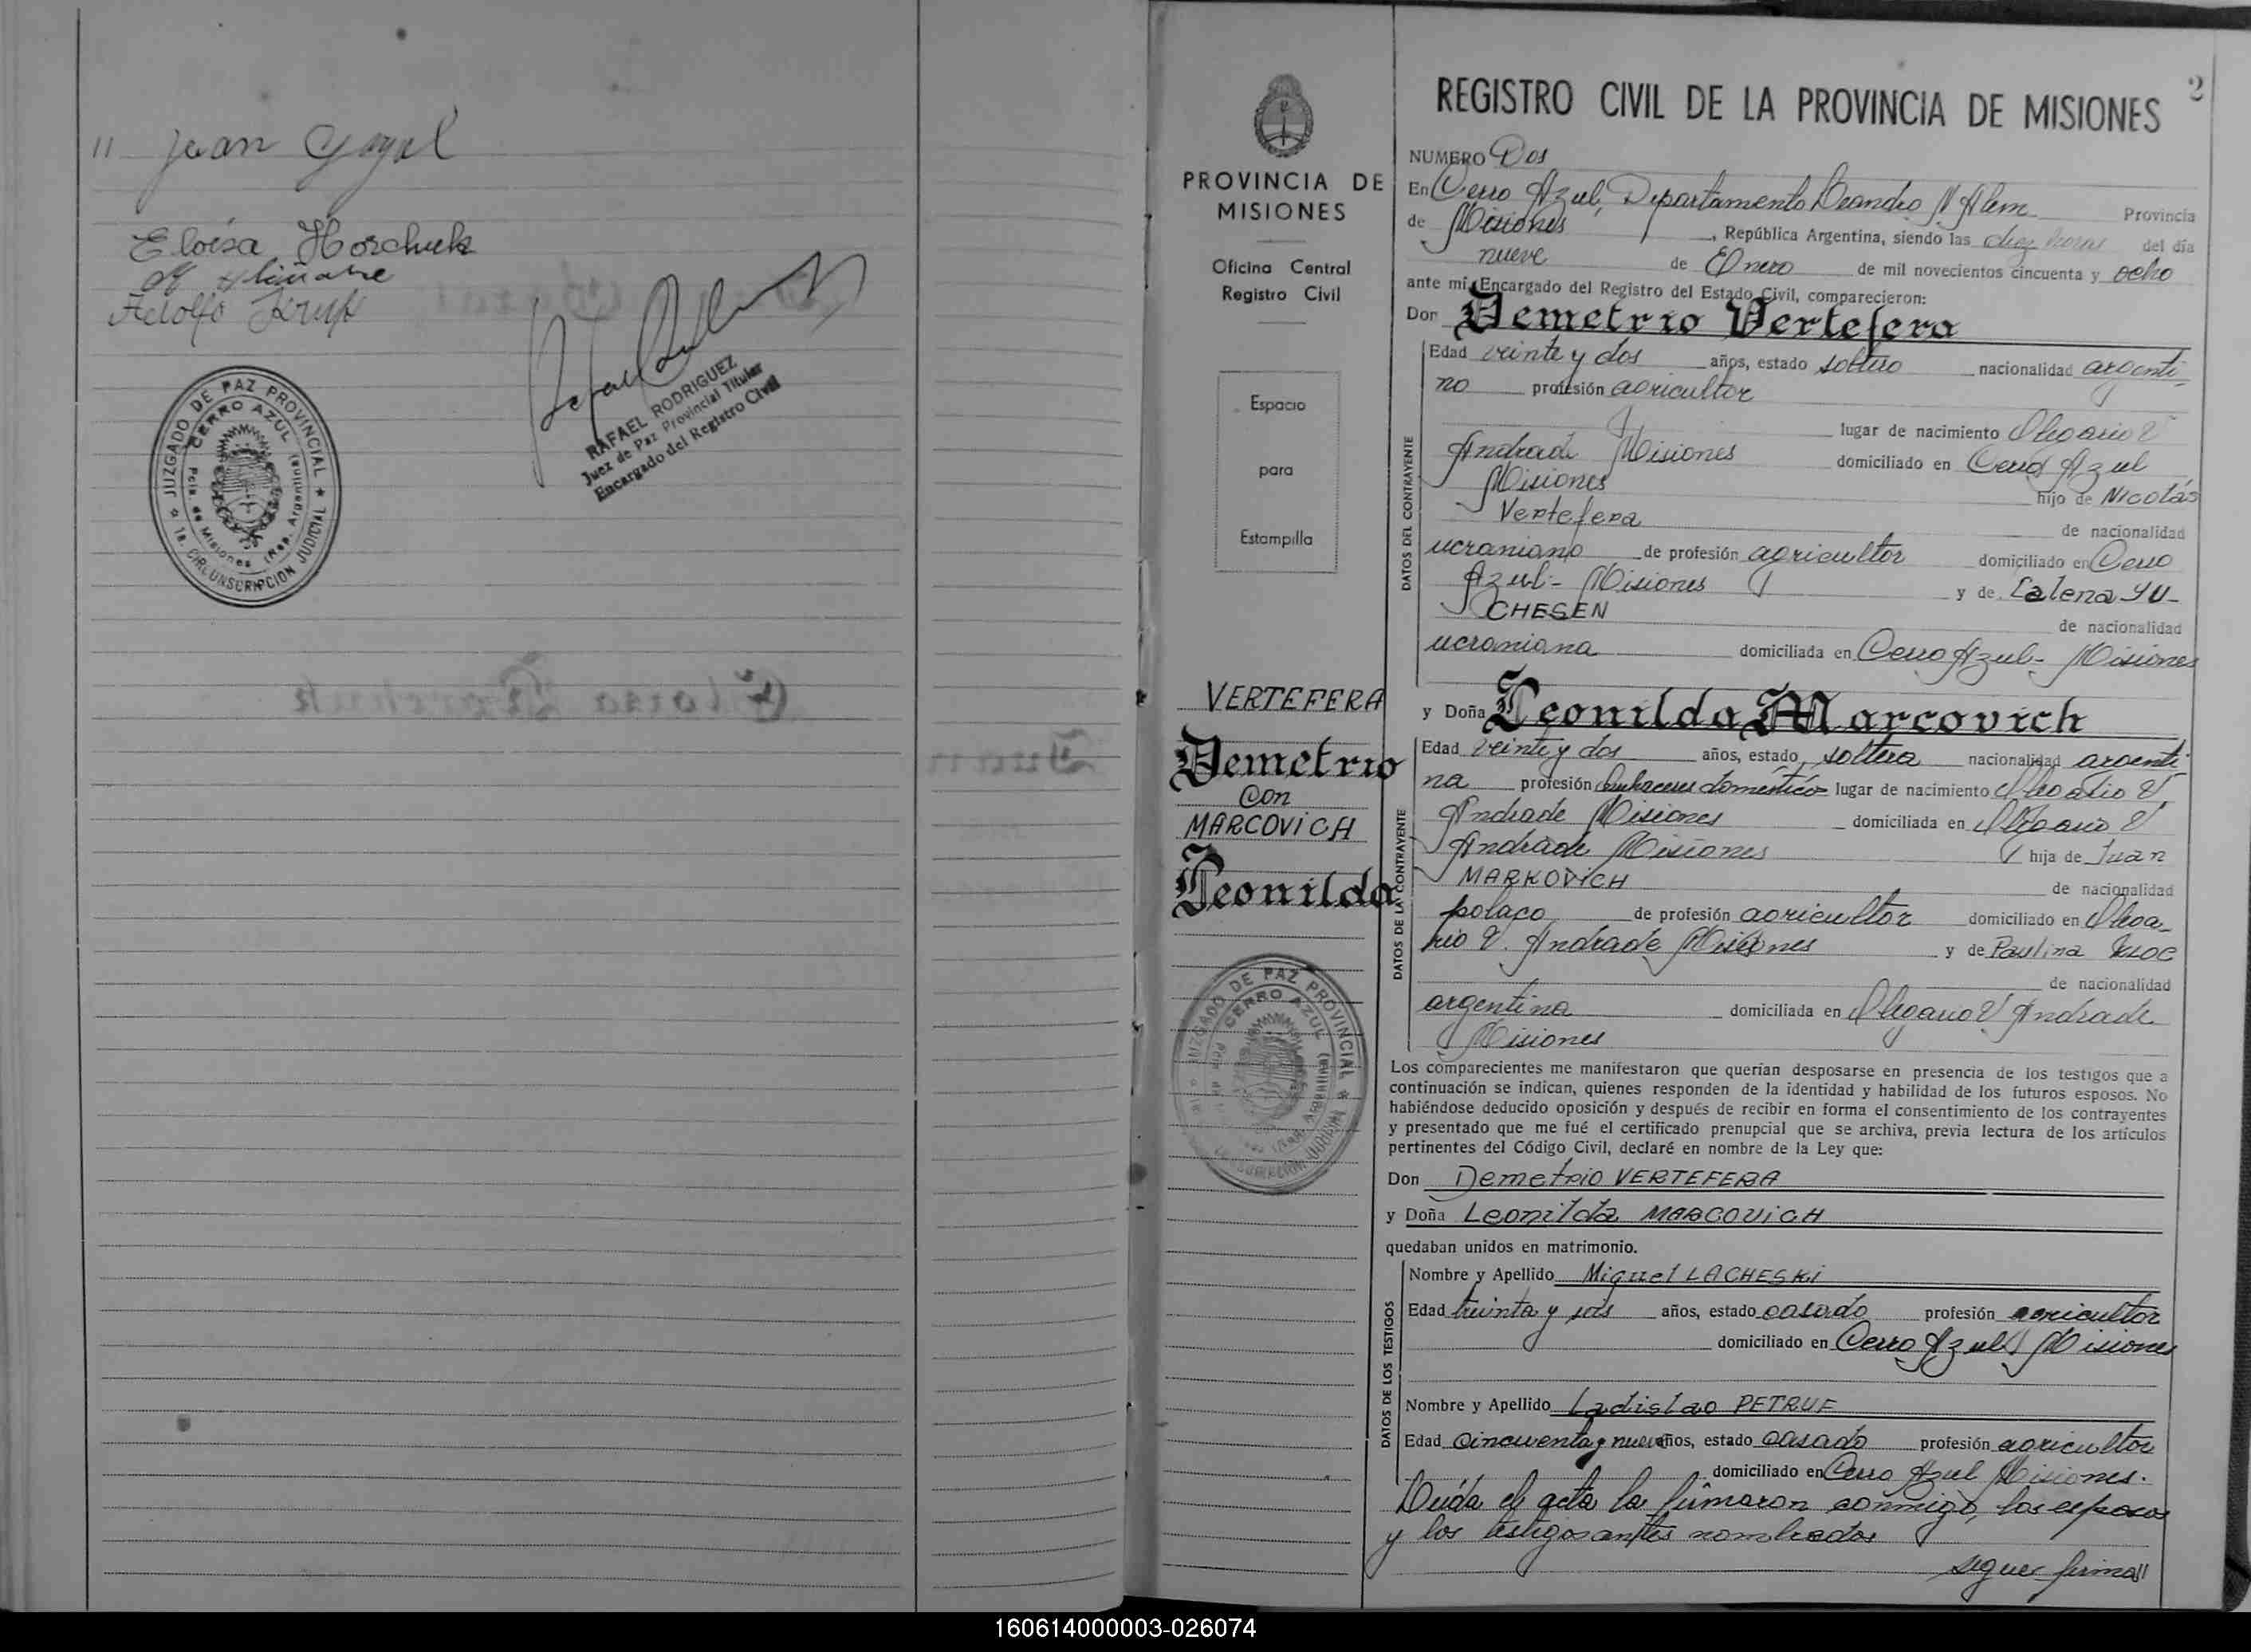 11 Juan Gogal
Eloisa Horchuk
Adolfo Krup
RAFAEL RODRIGUEZ
Juez de Paz Provincial Titular
Encargado del Registro Civil
JUZGADO DE PAZ PROVINCIAL
1a. CIRCUNSCRIPCION JUDICIAL
CERRO AZUL
Pcia. de Misiones (Rep. Argentina)
PROVINCIA DE
MISIONES
Oficina Central
Registro Civil
Espacio
para
Estampilla
VERTEFERA
Demetrio
con
MARCOVICH
Leonilda
JUZGADO DE PAZ PROVINCIAL
CERRO AZUL
2
REGISTRO CIVIL DE LA PROVINCIA DE MISIONES
NUMERO Dos
En Cerro Azul, Departamento Leandro N Alem Provincia
de Misiones, República Argentina, siendo las diez horas del día
nueve de Enero de mil novecientos cincuenta y ocho
ante mí, Encargado del Registro del Estado Civil, comparecieron:
Don Demetrio Vertefera
DATOS DEL CONTRAYENTE
Edad veinte y dos años, estado soltero nacionalidad argenti-
no profesión agricultor
lugar de nacimiento Olegario V
Andrade Misiones domiciliado en Cerro Azul
Misiones hijo de Nicolás
Vertefera de nacionalidad
ucraniano de profesión agricultor domiciliado en Cerro
Azul - Misiones y de Lalena YU-
CHESEN de nacionalidad
ucraniana domiciliada en Cerro Azul - Misiones
y Doña Leonilda Marcovich
DATOS DE LA CONTRAYENTE
Edad veinte y dos años, estado soltera nacionalidad argenti-
na profesión quehaceres domésticos lugar de nacimiento Olegario V.
Andrade Misiones domiciliada en Olegario V
Andrade Misiones hija de Juan
MARKOVICH de nacionalidad
polaco de profesión agricultor domiciliado en Olega-
rio V. Andrade Misiones y de Paulina
de nacionalidad
argentina domiciliada en Olegario V Andrade
Misiones
Los comparecientes me manifestaron que querían desposarse en presencia de los testigos que a
continuación se indican, quienes responden de la identidad y habilidad de los futuros esposos. No
habiéndose deducido oposición y después de recibir en forma el consentimiento de los contrayentes
y presentado que me fué el certificado prenupcial que se archiva, previa lectura de los artículos
pertinentes del Código Civil, declaré en nombre de la Ley que:
Don Demetrio VERTEFERA
y Doña Leonilda MARCOVICH
quedaban unidos en matrimonio.
DATOS DE LOS TESTIGOS
Nombre y Apellido Miguel LACHESKI
Edad treinta y seis años, estado casado profesión agricultor
domiciliado en Cerro Azul Misiones
Nombre y Apellido Ladislao PETRUF
Edad cincuenta y nueve años, estado casado profesión agricultor
domiciliado en Cerro Azul Misiones.
Leída el acta la firmaron conmigo, los esposos
y los testigos antes nombrados
siguen firmas//
160614000003-026074